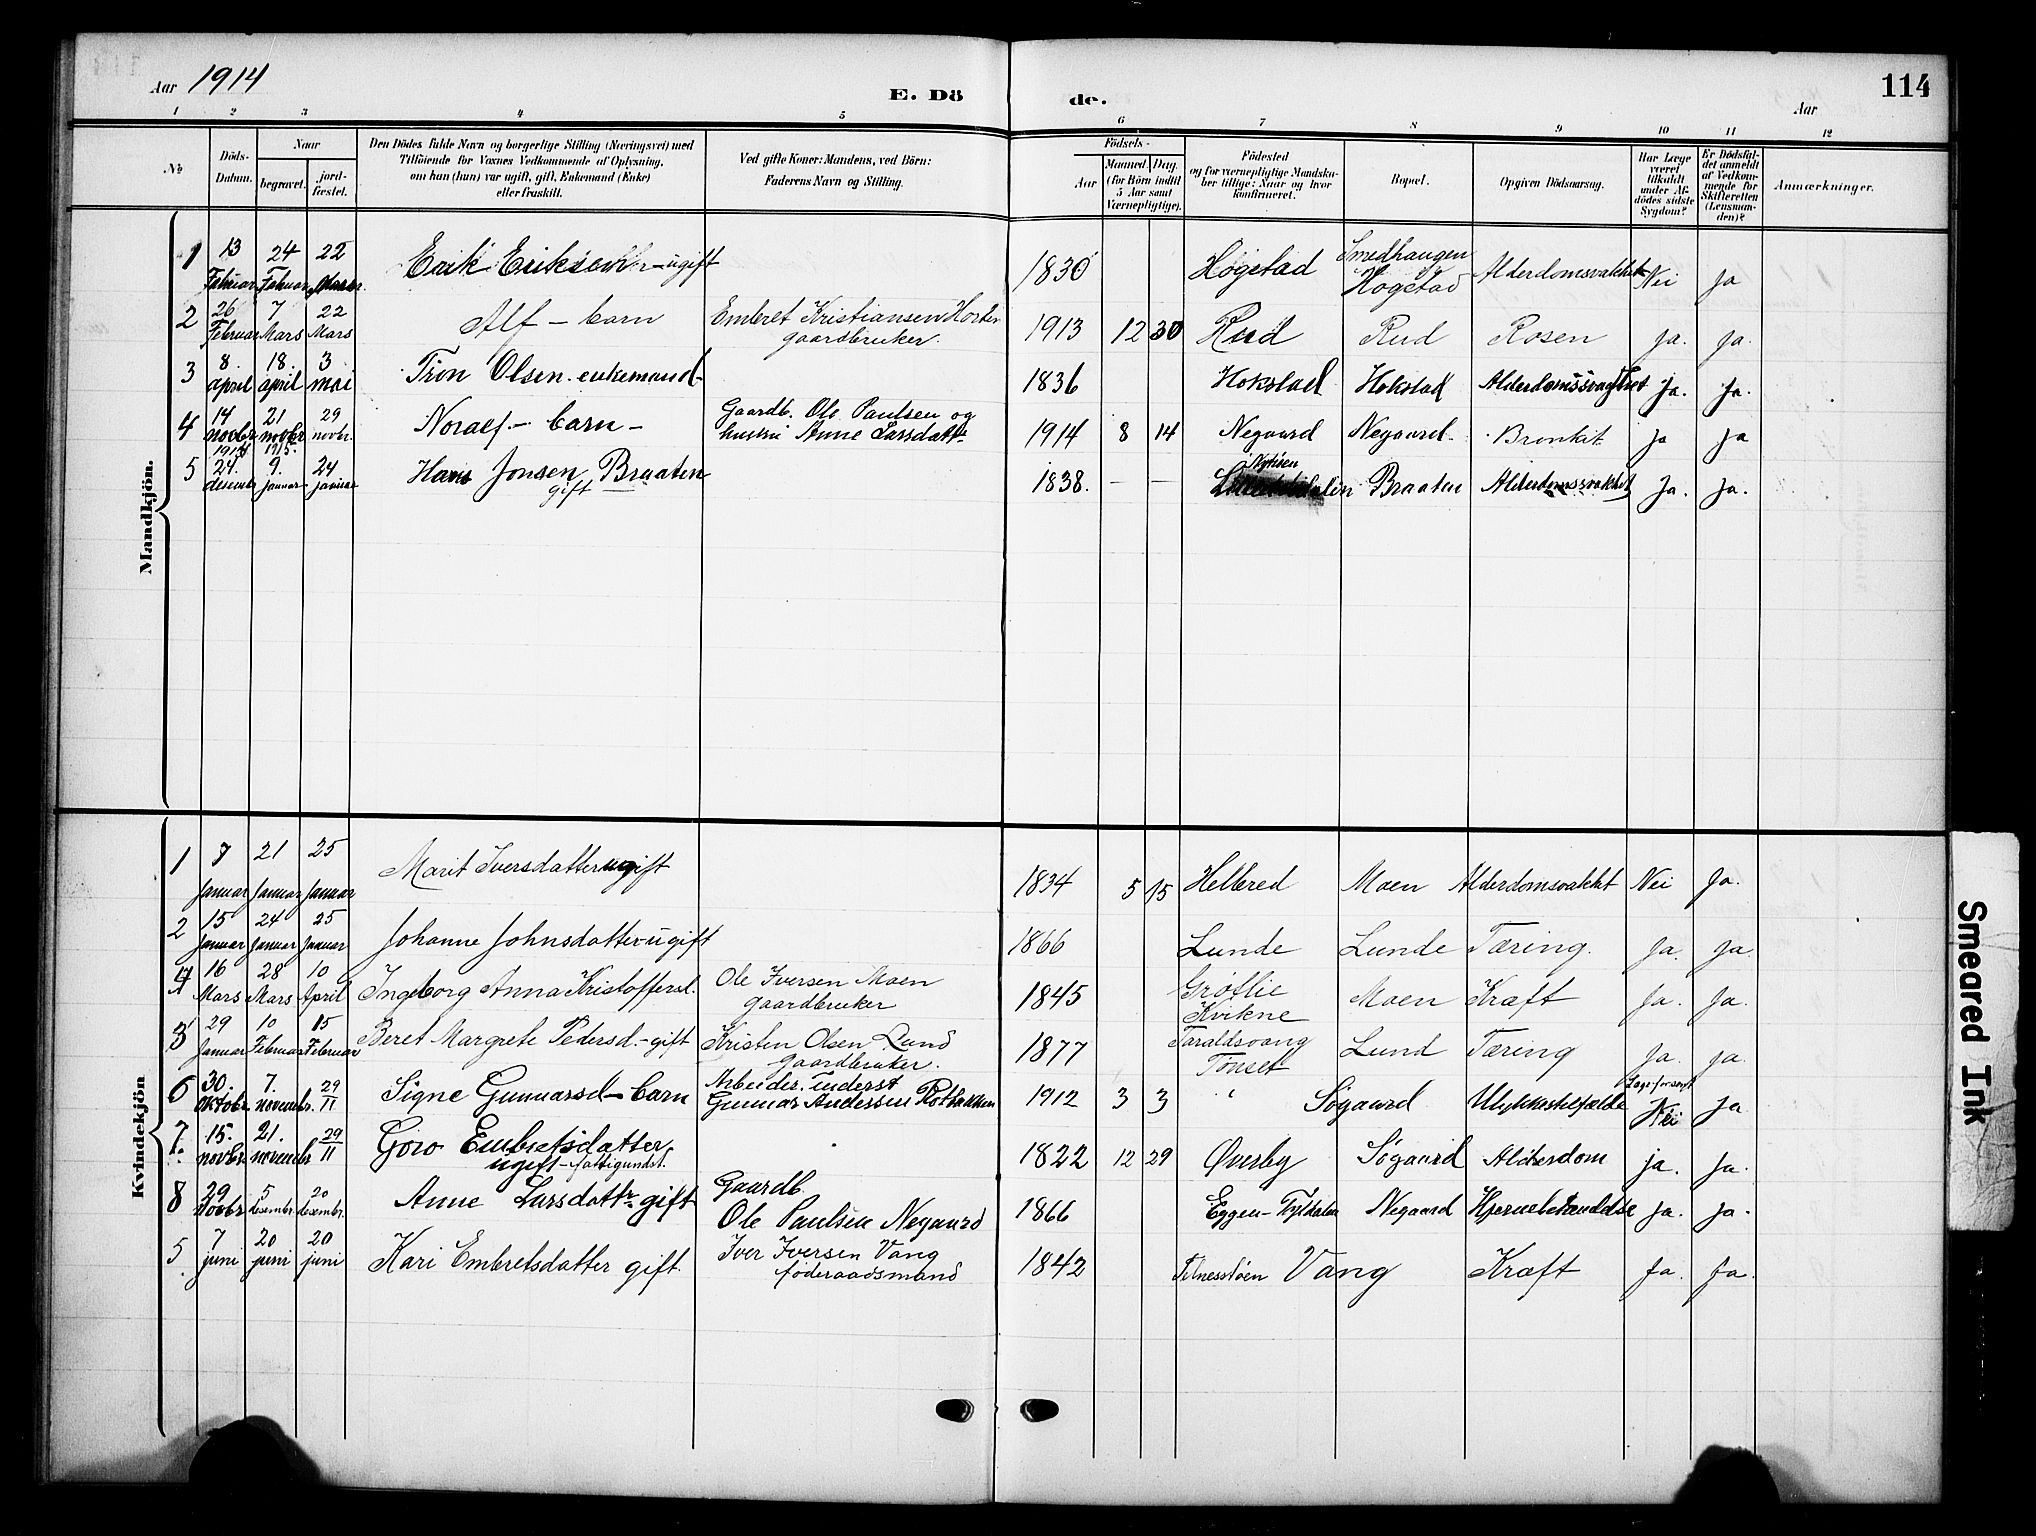 Aar 1914
E. Dö de.
Aar
114
1 2 3 4 5 6 7 8 9 10 11 12
No
Döds-
Datum.
Naar
begravet.
jord-
fæstet.
Den Dödes fulde Navn og borgerlige Stilling (Næringsvei) med
Tilföiende for Voxnes Vedkommende af Oplysning,
om han (hun) var ugift, gift, Enkemand (Enke)
eller fraskilt.
Ved gifte Koner: Mandens, ved Börn:
Faderens Navn og Stilling.
Födsels-
Aar
Maaned. Dag.
(for Börn indtil
5 Aar samt
Værnepligtige).
Födested
og for værnepligtige Mandska-
ber tillige: Naar og hvor
konfirmeret.
Bopæl.
Opgiven Dödsaarsag.
Har Læge
været
tilkaldt
under Af-
dödes sidste
Sygdom?
Er Dödsfal-
det anmeldt
af Vedkom-
mende for
Skifteretten
(Lensman-
den)?
Anmærkninger.
Mandkjön.
1 13 Februar 24 Februar 22 Mars Erik Eriksen - ugift 1830 Høgstad Smedhaugen Høgstad Alderdomsvakhet Nei Ja
2 26 Februar 7 Mars 22 Mars Alf - barn Embret Kristiansen gaardbruker. 1913 12 30 Rud Rud Rosen Ja. Ja.
3 8. april 18. april 3 mai Tron Olsen. enkemand- 1836 Hokstad Hokstad Alderdomssvaghet Ja. Ja.
4 14 novbr 21 novbr 29 novbr. Noralf - barn - Gaardb. Ole Paulsen og hustru Anne Larsdattr 1914 8 14 Negaard Negaard. Bronkit ja ja
5 1914 24. desember 1915. 9. januar 24 januar Hans Jonsen Braaten gift 1838. — — Braaten Alderdomssvakhet Ja. Ja.
Kvindekjön
1 7 Januar 21 Januar 25 Januar Marit Iversdatter ugift 1834 5 15 Helbred Moen Alderdomsvakhet Nei Ja.
2 15 Januar 24 Januar 25 Januar Johanne Johnsdatter ugift 1866 Lunde Lunde Tæring. Ja. Ja.
4 16 Mars 28 Mars 10 April Ingeborg Anna Kristoffersd. Ole Iversen Moen gaardbruker 1845 Grøtlie Kvikne Moen Kræft Ja. Ja.
3 29 Januar 10 Februar 15 Februar Beret Margrete Pedersd. - gift Kristen Olsen Lund gaardbruker. 1877 Taraldsvang Tönset Lund Tæring Ja. Ja.
6 30. oktobr. 7. novembr. 29/11 Signe Gunnarsd - barn Arbeider. Gunnar Anderssen 1912 3 3 " Søgaard Ulykkestilfælde Nei Ja
7. 15. novbr. 21. novembr 29/11 Goro Embretsdatter ugift - fattigundst. 1822 12 29 Øverby Søgaard Alderdom ja. Ja.
8 29 Novbr 5 desembr. 20 desembr. Anne Larsdattr gift Gaardb. Ole Paulsen Negaard 1866 Eggen - Tyldalen Negaard Hjernebetændelse ja. ja.
5 7 juni 20 juni 20 juni Kari Embretsdatter gift. Iver Iversen Vang føderaadsmand 1842 Vang Kræft Ja. Ja.
Smeared Ink